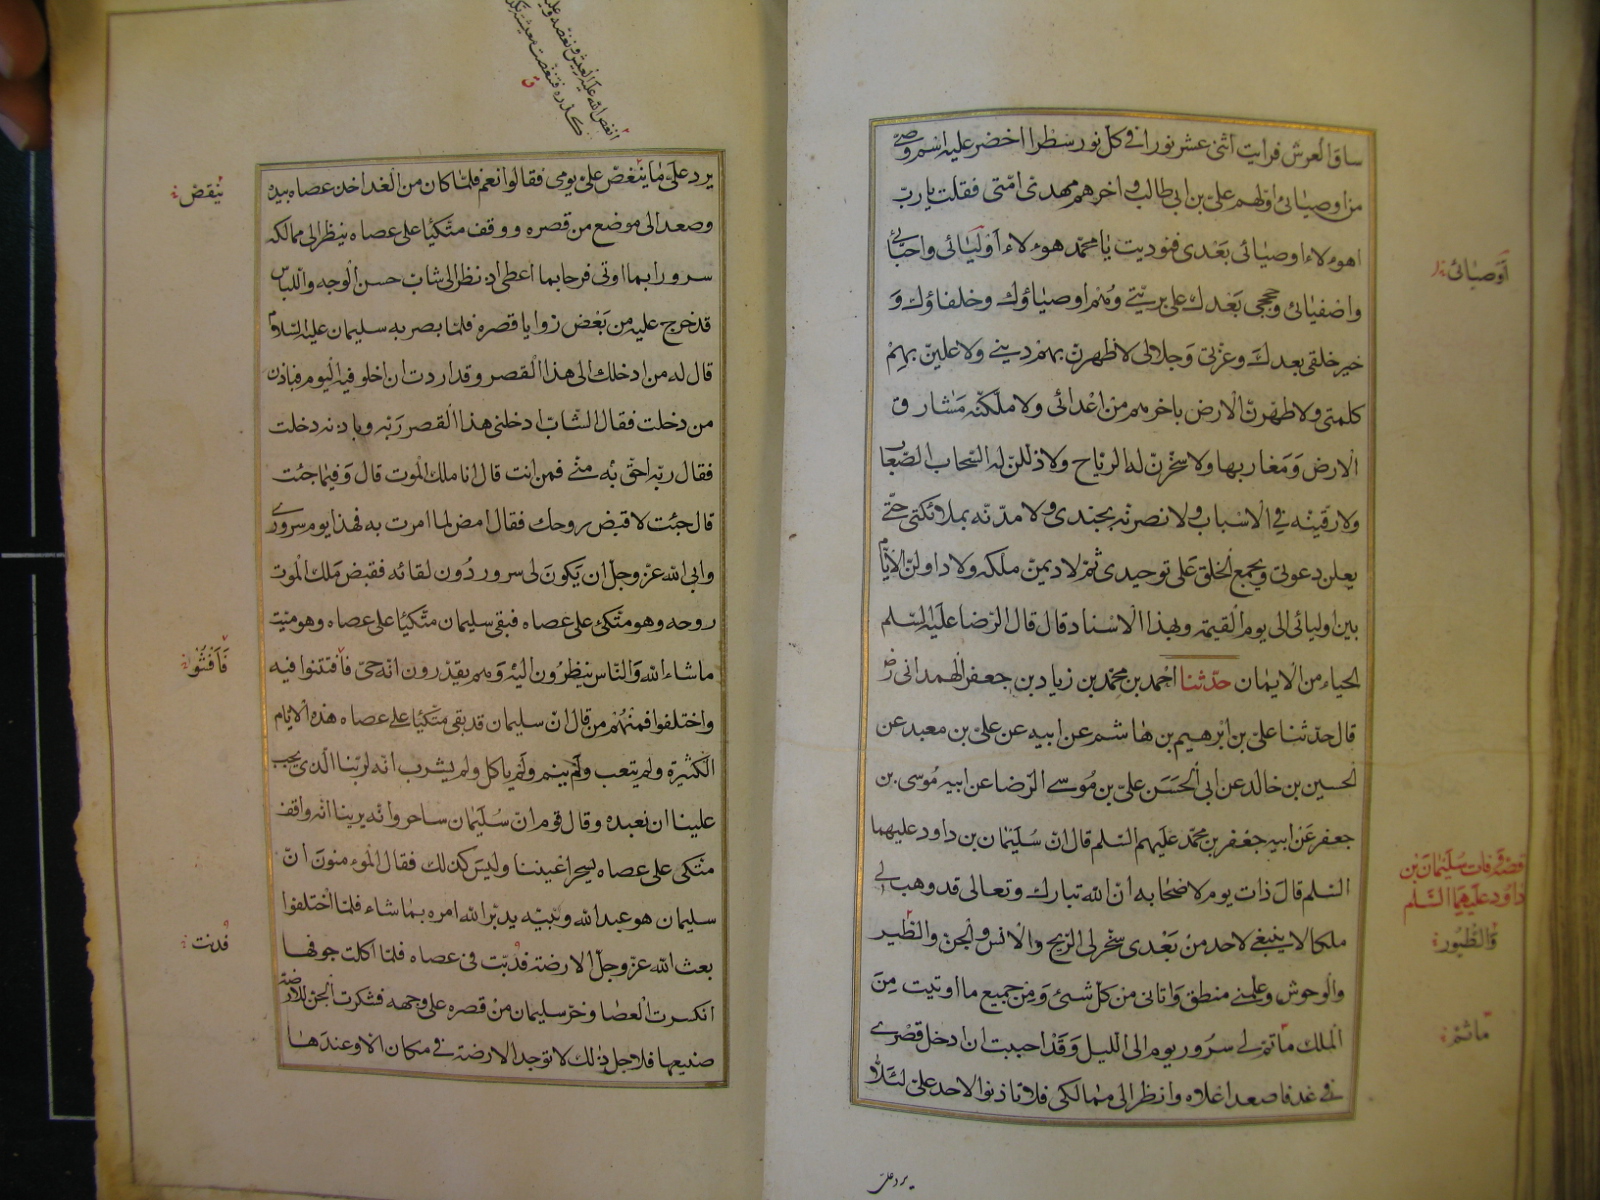 ساق العرش فرايت اثنى عشر نورا فى كل نور سطرا اخضر عليه اسم وصى
من اوصيائى اولهم على بن ابى طالب و اخرهم مهدى امتى فقلت يا رب
اهؤلاء اوصيائى بعدى فنوديت يا محمد هؤلاء اوليائى واحبائى
واصفيائى وحججى بعدك على بريتى وهم اوصياؤك وخلفاؤك و
خير خلقى بعدك وعزتى وجلالى لاظهرن بهم دينى ولاعلين بهم
كلمتى ولاطهرن الارض باخرهم من اعدائى ولاملكنه مشارق
الارض ومغاربها ولاسخرن له الرياح ولاذللن له السحاب الصعاب
ولارقينه فى الاسباب ولانصرنه بجندى ولامدنه بملائكتى حتى
يعلن دعوتى ويجمع الخلق على توحيدى ثم لاديمن ملكه ولاداولن الايام
بين اوليائى الى يوم القيمة وبهذا الاسناد قال قال الرضا عليه السلم
الحياء من الايمان حدثنا احمد بن محمد بن زياد بن جعفر الهمدانى رض
قال حدثنا على بن ابرهيم بن هاشم عن ابيه عن على بن معبد عن
الحسين بن خالد عن ابى الحسن على بن موسى الرضا عن ابيه موسى بن
جعفر عن ابيه جعفر بن محمد عليهم السلم قال ان سليمان بن داود عليهما
السلم قال ذات يوم لاصحابه ان الله تبارك وتعالى قد وهب لى
ملكا لا ينبغى لاحد من بعدى سخر لى الريح والانس والجن والطير
والوحوش وعلمنى منطق واتانى من كل شىئ ومن جميع ما اوتيت من
الملك ماتم لى سرور يوم الى الليل وقد احببت ان ادخل قصرى
فى غد فاصعد اعلاه وانظر الى ممالكى فلا تاذنوا لاحد على لئلا
يرد على
اوصيائى
قصة وفات سليمان بن
داود عليهما السلم
والطيور
ماتم
يرد على ما ينغض على يومى فقالوا نعم فلما كان من الغد اخذ عصاه بيده
وصعد الى موضع من قصره ووقف متكيا على عصاه ينظر الى ممالكه
سرورا بما اوتى فرحا بما اعطى اذ نظر الى شاب حسن الوجه واللباس
قد خرج عليه من بعض زوايا قصره فلما بصر به سليمان عليه السلام
قال له من ادخلك الى هذا القصر وقد اردت ان اخلو فيه اليوم فباذن
من دخلت فقال الشاب ادخلنى هذا القصر ربه وباذنه دخلت
فقال ربه احق به منى فمن انت قال انا ملك الموت قال وفيما جئت
قال جئت لاقبض روحك فقال امض لما امرت به فهذا يوم سرورى
وابى الله عز وجل ان يكون لى سرور دون لقائه فقبض ملك الموت
روحه وهو متكئ على عصاه فبقى سليمان متكيا على عصاه وهو ميت
ما شاء الله والناس ينظرون اليه وهم يقدرون انه حى فافتتنوا فيه
واختلفوا فمنهم من قال ان سليمان قد بقى متكيا على عصاه هذه الايام
الكثيرة ولم يتعب ولم ينم ولم ياكل ولم يشرب انه لربنا الذى يجب
علينا ان نعبده وقال قوم ان سليمان ساحر وانه يرينا انه واقف
متكى على عصاه يسحر اعيننا وليس كذلك فقال المؤمنون ان
سليمان هو عبد الله ونبيه يدبر الله امره بما شاء فلما اختلفوا
بعث الله عز وجل الارضة فدبت فى عصاه فلما اكلت جوفها
انكسرت العصا وخر سليمان من قصره على وجهه فشكرت الجن للارضة
صنيعها فلاجل ذلك لا توجد الارضة فى مكان الا وعندها
انغص الله عليه العيش ونغصه عليه
كدره فتنغصت معيشته
ينقض
فدنت